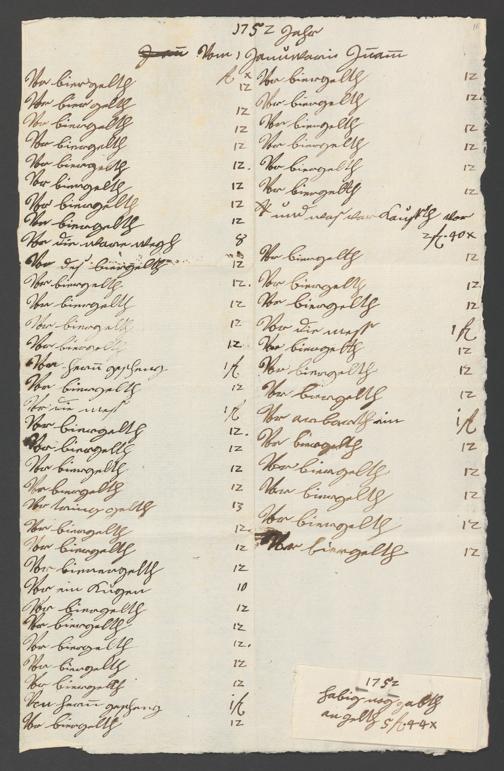 1752 Jahr
Vom 1 Januwari
fl x
Vor biergelth 12
Vor biergelth 12
Vor biergelth 12
Vor biergelth 12
Vor biergelth 12.
Vor biergelth 12
Vor biergelth 12
Vor biergelth 12
Vor die 8
Vor des biergelth 12
Vor biergelth 12.
Vor biergelth 12
Vor biergelth 12
Vor biergelth 12
1 fl
Vor biergelth 12
Vor die mess 1 fl
Vor biergelth 12.
Vor biergelth 12
Vor biergelth 12
Vor biergelth 12
Vor gelth 13
Vor biergelth 12.
Vor biergelth 12
Vor biergelth 12
Vor ein 10
Vor biergelth 12
Vor biergelth 12
Vor biergelth 12.
Vor biergelth 12
Vor biergelth 12
1 fl
Vor biergelth 12
Vor biergelth 12
Vor biergelth 12.
Vor biergelth 12
Vor biergelth 12
Vor biergelth 12
Vor biergelth 12
und was vor
2 fl 40 x
Vor biergelth 12
Vor biergelth 12
Vor biergelth 12
Vor die mess 1 fl
Vor biergelth 12
Vor biergelth 12
Vor biergelth 12
Vor 1 fl
Vor biergelth 12
Vor biergelth 12
Vor biergelth 12
Vor biergelth 12
Vor biergelth 12
1752
hab ig
an gelth 5 fl 44 x